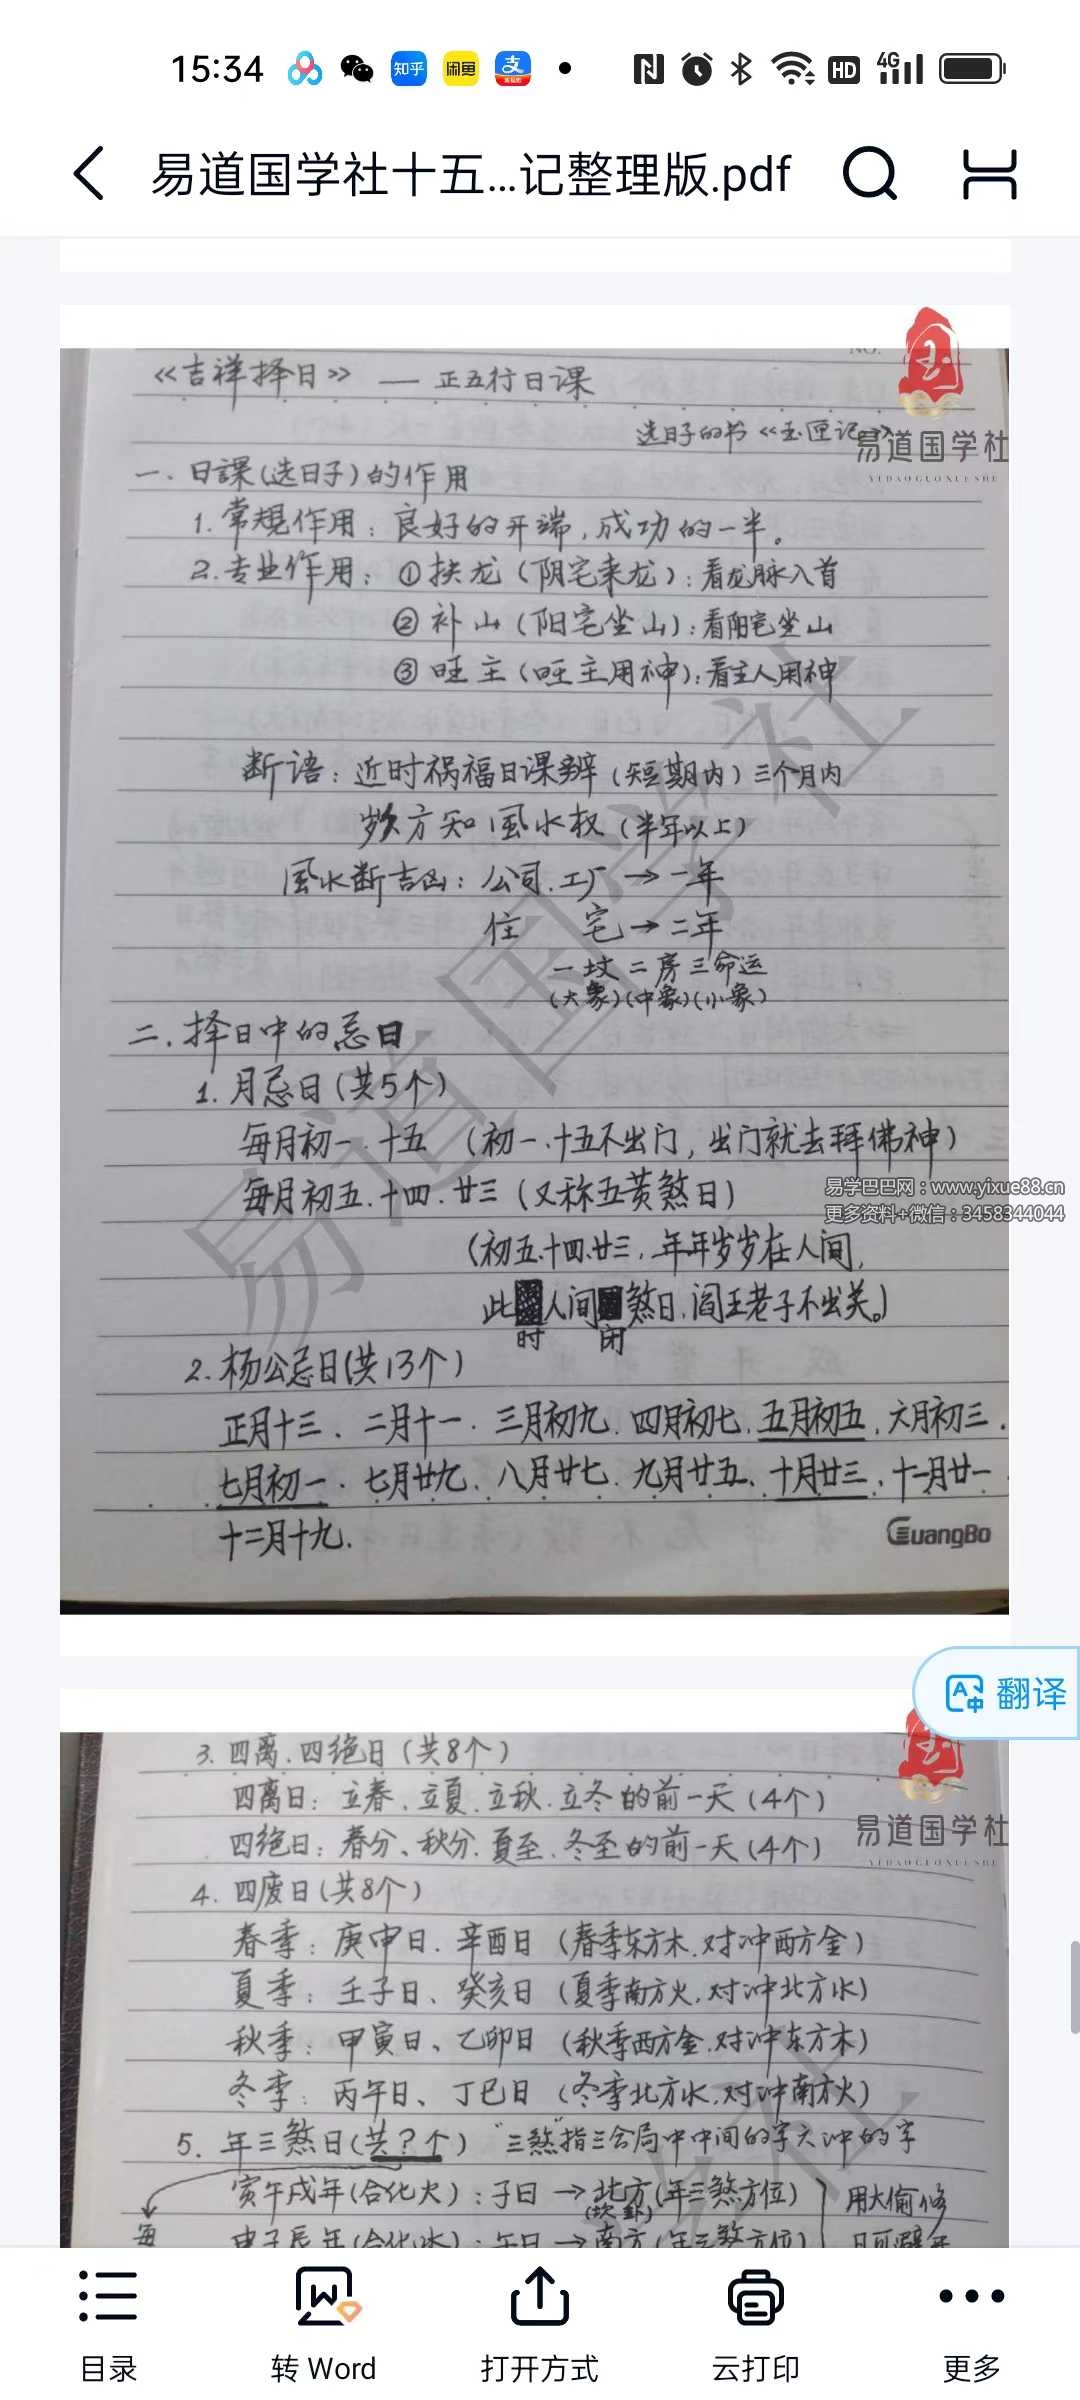 15:34
知乎
闲鱼
支
HD
4G
易道国学社十五...记整理版.pdf
NO.
《吉祥择日》 — 正五行日课
选日子的书《玉匣记》
易道国学社
YIDAOGUOXUESHE
一.日課(选日子)的作用
1.常规作用：良好的开端,成功的一半。
2.专业作用：①扶龙（阴宅来龙）:看龙脉入首
②补山（阳宅坐山）:看阳宅坐山
③旺主（旺主用神）:看主人用神
断语：近时祸福日课辨（短期内）三个月内
方知風水权（半年以上）
風水断吉凶：公司.工厂→一年
住 宅→二年
一坟二房三命运
(大象)(中象)(小象)
二.择日中的忌日
1.月忌日(共5个)
每月初一.十五 （初一、十五不出门，出门就去拜佛神）
每月初五.十四.廿三（又称五黄煞日）
易学巴巴网：www.yixue88.cn
更多资料+微信：3458344044
（初五、十四、廿三，年年岁岁在人间,
此人间煞日,阎王老子不出关。）
时 闭
2.杨公忌日(共13个)
正月十三、二月十一.三月初九.四月初七.五月初五.六月初三.
七月初一.七月廿九.八月廿七.九月廿五.十月廿三.十一月廿一
十二月十九.
GuangBo
翻译
易道国学社
3.四离.四绝日（共8个）
易道国学社
YIDAOGUOXUESHE
四离日：立春、立夏.立秋.立冬的前一天（4个）
四绝日：春分、秋分.夏至.冬至的前一天（4个）
4.四废日(共8个)
春季：庚申日.辛酉日（春季东方木.对冲西方金）
夏季：壬子日、癸亥日（夏季南方火.对冲北方水）
秋季：甲寅日、乙卯日（秋季西方金.对冲东方木）
冬季：丙午日、丁巳日（冬季北方水.对冲南方火）
5.年三煞日(共?个) "三煞"指三合局中中间的字六冲的字
寅午戌年(合化火)：子日→北方(年三煞方位)
(坎卦)
用大偷修
每
申子辰年(合化水)：午日→南方(年三煞方位)
日可避开
目录
转 Word
打开方式
云打印
更多